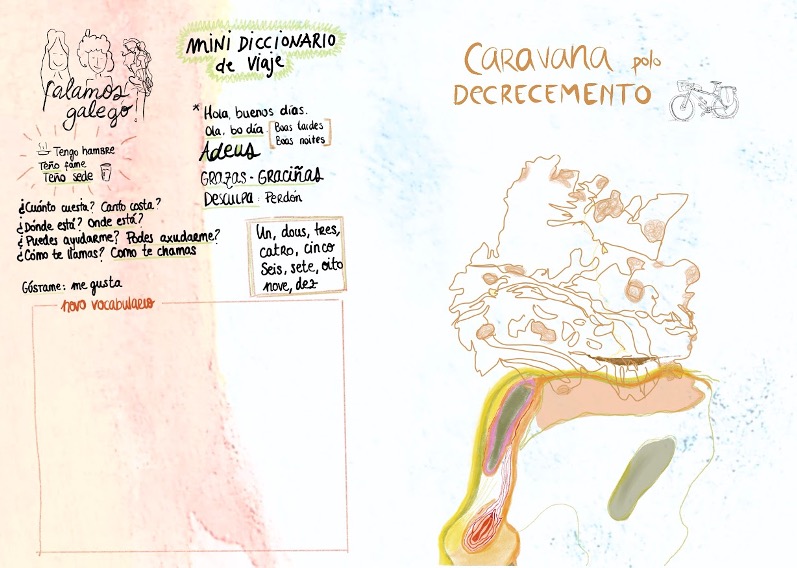 Falamos
galego
MINI DICCIONARIO
de Viaje
* Hola, buenos días.
Ola, bo día
Boas tardes
Boas noites
Adeus
GRAZAS - GRACIÑAS
DESCULPA: Perdón
Tengo hambre
Teño fame
Teño sede
¿Cuánto cuesta? Canto costa?
¿Dónde está? Onde está?
¿Puedes ayudarme? Podes axudarme?
¿Cómo te llamas? Como te chamas
Góstame: me gusta
Un, dous, tres,
catro, cinco
Seis, sete, oito
nove, dez
novo vocabulario
CARAVANA polo
DECRECEMENTO